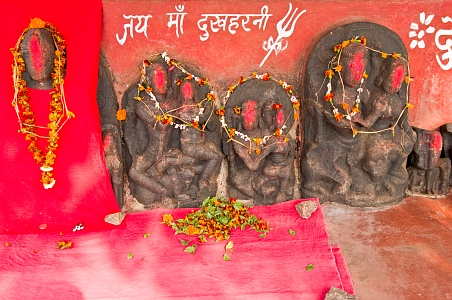 जय माँ दुखहरनी